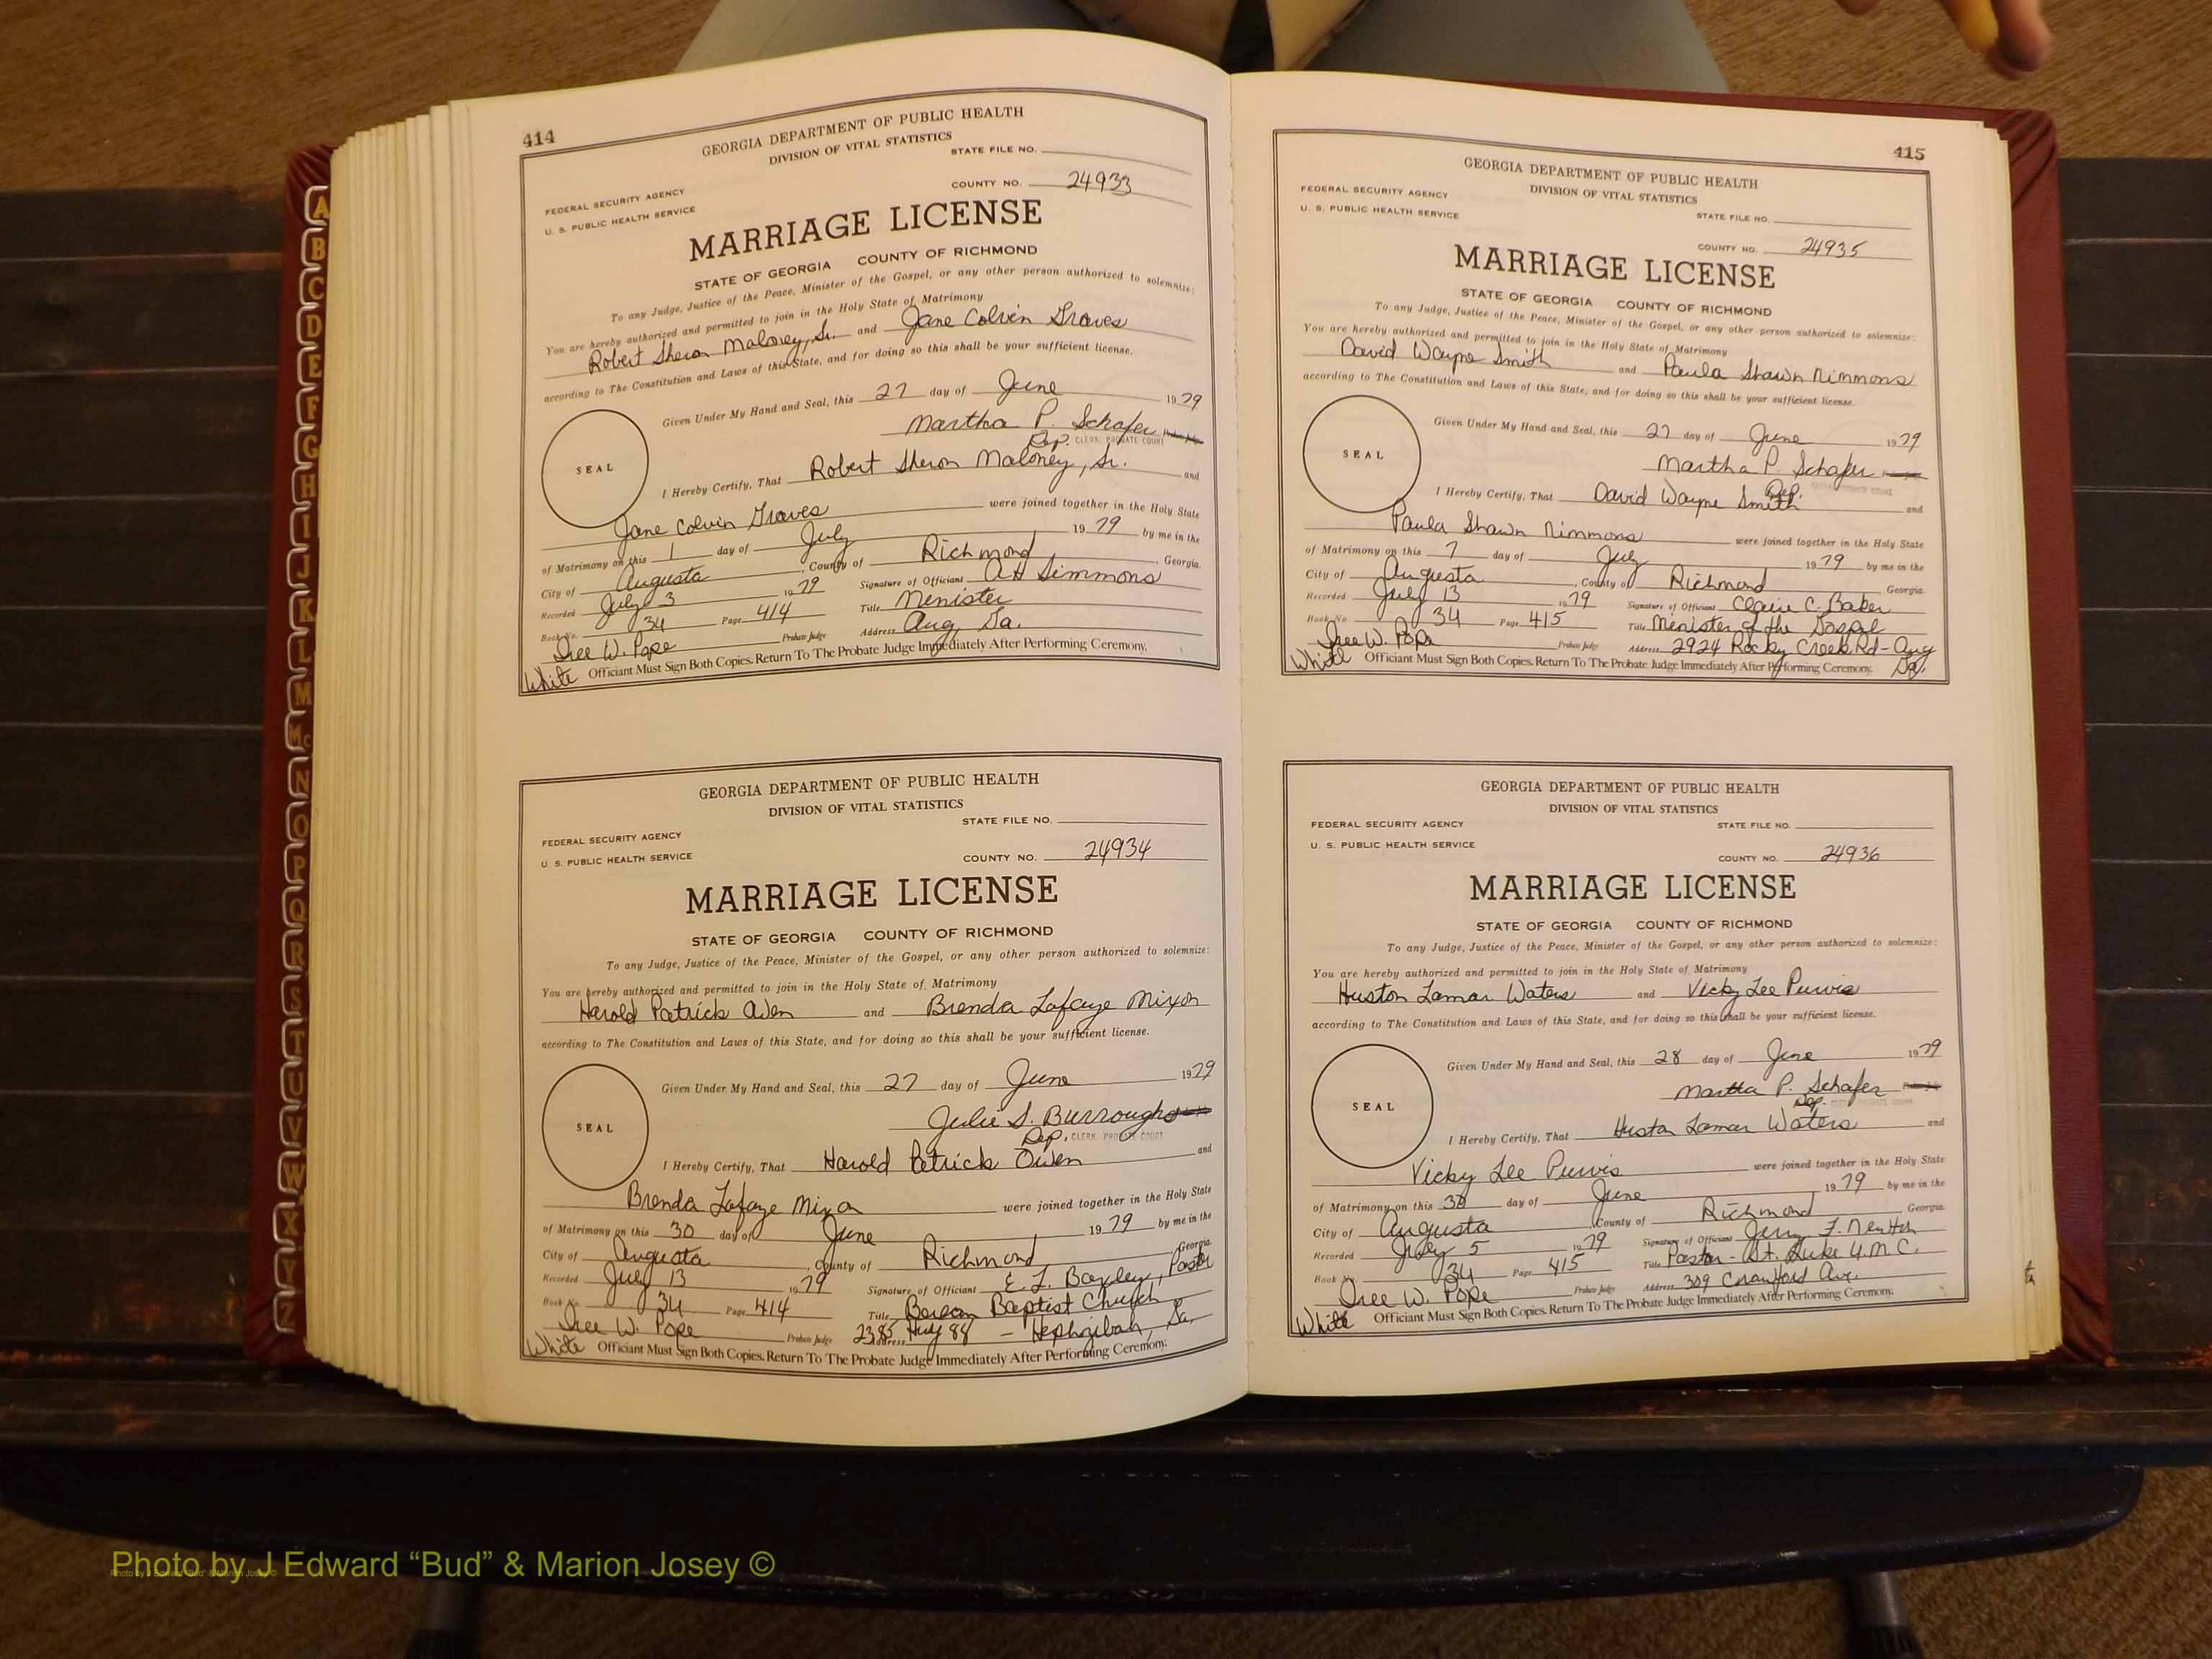 414
GEORGIA DEPARTMENT OF PUBLIC HEALTH
DIVISION OF VITAL STATISTICS
STATE FILE NO.
COUNTY NO. 24933
FEDERAL SECURITY AGENCY
U. S. PUBLIC HEALTH SERVICE
MARRIAGE LICENSE
STATE OF GEORGIA COUNTY OF RICHMOND
To any Judge, Justice of the Peace, Minister of the Gospel, or any other person authorized to solemnize:
You are hereby authorized and permitted to join in the Holy State of Matrimony
Robert Sheron Maloney, Sr. and Jane Colvin Graves
according to The Constitution and Laws of this State, and for doing so this shall be your sufficient license.
Given Under My Hand and Seal, this 27 day of June 1979
Martha P. Schafer
Dep. CLERK, PROBATE COURT
SEAL
I Hereby Certify, That Robert Sheron Maloney, Sr. and
Jane Colvin Graves were joined together in the Holy State
of Matrimony on this 1 day of July 1979 by me in the
City of Augusta, County of Richmond, Georgia.
Recorded July 3 1979 Signature of Officiant AH Simmons
Book No. 34 Page 414 Title Menister
Iree W. Pope Probate Judge Address Aug Ga.
White Officiant Must Sign Both Copies. Return To The Probate Judge Immediately After Performing Ceremony.
GEORGIA DEPARTMENT OF PUBLIC HEALTH
DIVISION OF VITAL STATISTICS
STATE FILE NO.
FEDERAL SECURITY AGENCY
U. S. PUBLIC HEALTH SERVICE
COUNTY NO. 24934
MARRIAGE LICENSE
STATE OF GEORGIA COUNTY OF RICHMOND
To any Judge, Justice of the Peace, Minister of the Gospel, or any other person authorized to solemnize:
You are hereby authorized and permitted to join in the Holy State of Matrimony
Harold Patrick Owen and Brenda Lafaye Mixon
according to The Constitution and Laws of this State, and for doing so this shall be your sufficient license.
Given Under My Hand and Seal, this 27 day of June 1979
Julie S. Burroughs
Dep. CLERK, PROBATE COURT
SEAL
I Hereby Certify, That Harold Patrick Owen and
Brenda Lafaye Mixon were joined together in the Holy State
of Matrimony on this 30 day of June 1979 by me in the
City of Augusta, County of Richmond Georgia.
Recorded July 13 1979 Signature of Officiant E. L. Baxley, Pastor
Book No. 34 Page 414 Title Berean Baptist Church
Iree W. Pope Probate Judge Address 2385 Hwy 88 - Hephzibah, Ga.
White Officiant Must Sign Both Copies. Return To The Probate Judge Immediately After Performing Ceremony.
415
GEORGIA DEPARTMENT OF PUBLIC HEALTH
DIVISION OF VITAL STATISTICS
FEDERAL SECURITY AGENCY
U. S. PUBLIC HEALTH SERVICE
STATE FILE NO.
COUNTY NO. 24935
MARRIAGE LICENSE
STATE OF GEORGIA COUNTY OF RICHMOND
To any Judge, Justice of the Peace, Minister of the Gospel, or any other person authorized to solemnize:
You are hereby authorized and permitted to join in the Holy State of Matrimony
David Wayne Smith and Paula Shawn Nimmons
according to The Constitution and Laws of this State, and for doing so this shall be your sufficient license.
Given Under My Hand and Seal, this 27 day of June 1979
Martha P. Schafer
Dep.
SEAL
I Hereby Certify, That David Wayne Smith and
Paula Shawn Nimmons were joined together in the Holy State
of Matrimony on this 7 day of July 1979 by me in the
City of Augusta, County of Richmond Georgia.
Recorded July 13 1979 Signature of Officiant Claire C. Baker
Book No. 34 Page 415 Title Menister of the Gospel
Iree W. Pope Probate Judge Address 2924 Rocky Creek Rd - Aug
Ga.
White Officiant Must Sign Both Copies. Return To The Probate Judge Immediately After Performing Ceremony.
GEORGIA DEPARTMENT OF PUBLIC HEALTH
DIVISION OF VITAL STATISTICS
FEDERAL SECURITY AGENCY
STATE FILE NO.
U. S. PUBLIC HEALTH SERVICE
COUNTY NO. 24936
MARRIAGE LICENSE
STATE OF GEORGIA COUNTY OF RICHMOND
To any Judge, Justice of the Peace, Minister of the Gospel, or any other person authorized to solemnize:
You are hereby authorized and permitted to join in the Holy State of Matrimony
Huston Lamar Waters and Vicky Lee Purvis
according to The Constitution and Laws of this State, and for doing so this shall be your sufficient license.
Given Under My Hand and Seal, this 28 day of June 1979
Martha P. Schafer
Dep.
SEAL
I Hereby Certify, That Huston Lamar Waters and
Vicky Lee Purvis were joined together in the Holy State
of Matrimony on this 30 day of June 1979 by me in the
City of Augusta, County of Richmond Georgia.
Recorded July 5 1979 Signature of Officiant Jerry F. Newton
Book No. 34 Page 415 Title Pastor - St. Luke U.M.C.
Iree W. Pope Probate Judge Address 309 Crawford Ave.
White Officiant Must Sign Both Copies. Return To The Probate Judge Immediately After Performing Ceremony.
A
B
C
D
E
F
G
H
I
J
K
L
M
Mc
N
O
P
Q
R
S
T
U
V
W
X
Y
Z
Photo by J Edward “Bud” & Marion Josey ©